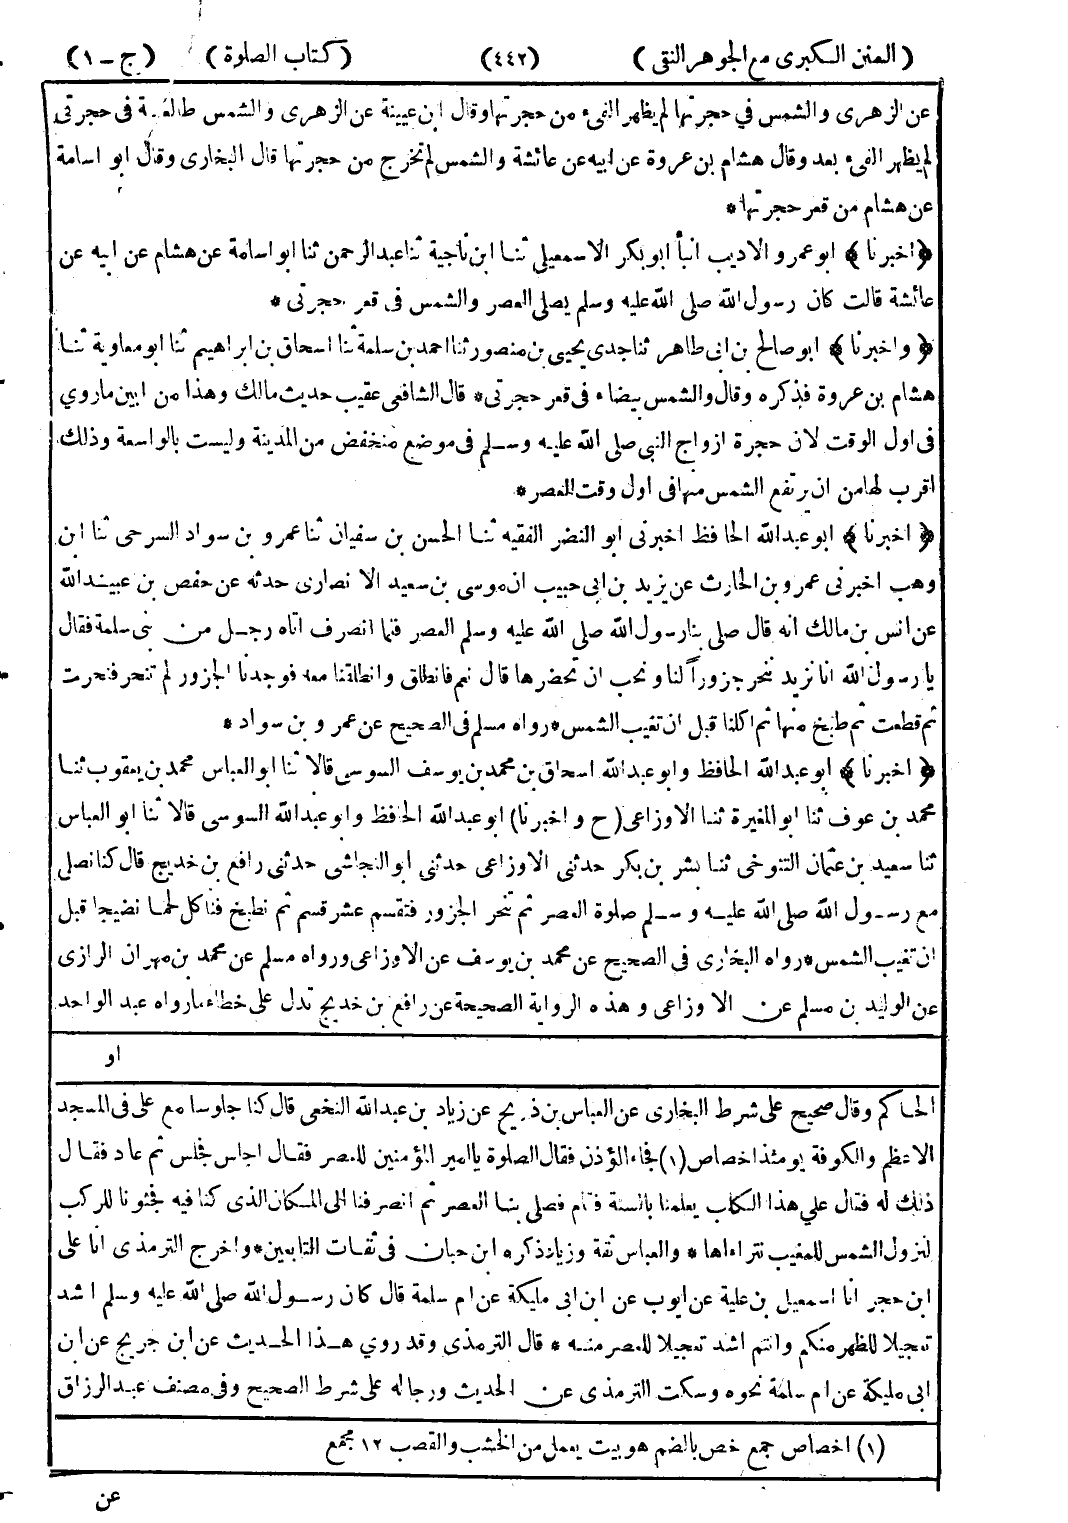 ( السنن الكبرى مع الجوهر النقى ) (٤٤٢) ( كتاب الصلوة ) ( ج - ١ )
عن الزهرى والشمس في حجرتها لم يظهر الفىء من حجرتها وقال ابن عيينة عن الزهرى والشمس طالعة فى حجرتى
لم يظهر الفىء بعد وقال هشام بن عروة عن ابيه عن عائشة والشمس لم تخرج من حجرتها قال البخارى وقال ابو اسامة
عن هشام من قعر حجرتها *
﴿ اخبرنا ﴾ ابو عمرو الاديب انبأ ابو بكر الاسمعيلى ثنا ابن ناجية ثنا عبدالرحمن ثنا ابو اسامة عن هشام عن ابيه عن
عائشة قالت كان رسول الله صلى الله عليه وسلم يصلى العصر والشمس فى قعر حجرتى *
﴿ واخبرنا ﴾ ابو صالح بن ابى طاهر ثنا جدى يحيى بن منصور ثنا احمد بن سلمة ثنا اسحاق بن ابراهيم ثنا ابو معاوية ثنا
هشام بن عروة فذكره وقال والشمس بيضاء فى قعر حجرتى * قال الشافعى عقيب حديث مالك وهذا من ابين ماروي
فى اول الوقت لان حجرة ازواج النبى صلى الله عليه وسلم فى موضع منخفض من المدينة وليست بالواسعة وذلك
اقرب لها من ان يرتفع الشمس منها فى اول وقت العصر *
﴿ اخبرنا ﴾ ابو عبدالله الحافظ اخبرنى ابو النضر الفقيه ثنا الحسن بن سفيان ثنا عمرو بن سواد السرحى ثنا ابن
وهب اخبرنى عمرو بن الحارث عن يزيد بن ابى حبيب ان موسى بن سعيد الانصارى حدثه عن حفص بن عبيدالله
عن انس بن مالك انه قال صلى بنا رسول الله صلى الله عليه وسلم العصر فلما انصرف اتاه رجل من بنى سلمة فقال
يا رسول الله انا نريد ننحر جزوراً لنا ونحب ان تحضرها قال نعم فانطلق وانطلقنا معه فوجدنا الجزور لم تنحر فنحرت
ثم قطعت ثم طبخ منها ثم اكلنا قبل ان تغيب الشمس * رواه مسلم فى الصحيح عن عمرو بن سواد *
﴿ اخبرنا ﴾ ابو عبدالله الحافظ وابو عبدالله اسحاق بن محمد بن يوسف السوسى قالا ثنا ابو العباس محمد بن يعقوب ثنا
محمد بن عوف ثنا ابو المغيرة ثنا الاوزاعى (ح واخبرنا) ابو عبدالله الحافظ وابو عبدالله السوسى قالا ثنا ابو العباس
ثنا سعيد بن عثمان التنوخى ثنا بشر بن بكر حدثنى الاوزاعى حدثنى ابو النجاشى حدثنى رافع بن خديج قال كنا نصلى
مع رسول الله صلى الله عليه وسلم صلوة العصر ثم ننحر الجزور فتقسم عشر قسم ثم نطبخ فنأكل لحما نضيجا قبل
ان تغيب الشمس * رواه البخارى فى الصحيح عن محمد بن يوسف عن الاوزاعى ورواه مسلم عن محمد بن مهران الرازى
عن الوليد بن مسلم عن الاوزاعى وهذه الرواية الصحيحة عن رافع بن خديج تدل على خطاء مارواه عبد الواحد
او
الحاكم وقال صحيح على شرط البخارى عن العباس بن ذريح عن زياد بن عبدالله النخعى قال كنا جلوسا مع على فى المسجد
الاعظم والكوفة يومئذ اخصاص (١) فجاءه المؤذن فقال الصلوة يا امير المؤمنين للعصر فقال اجلس فجلس ثم عاد فقال
ذلك له فقال علي هذا الكلب يعلمنا بالسنة فقام فصلى بنا العصر ثم انصرفنا الى المكان الذى كنا فيه فجثونا للركب
لنزول الشمس للمغيب نتراءاها * والعباس ثقة وزياد ذكره ابن حبان فى ثقات التابعين * واخرج الترمذى انا على
ابن حجر انا اسمعيل بن علية عن ايوب عن ابن ابى مليكة عن ام سلمة قال كان رسول الله صلى الله عليه وسلم اشد
تعجيلا للظهر منكم وانتم اشد تعجيلا للعصر منه * قال الترمذى وقد روي هذا الحديث عن ابن جريج عن ابن
ابى مليكة عن ام سلمة نحوه وسكت الترمذى عن الحديث ورجاله على شرط الصحيح وفى مصنف عبدالرزاق
(١) اخصاص جمع خص بالضم هو بيت يعمل من الخشب والقصب ١٢ مجمع
عن